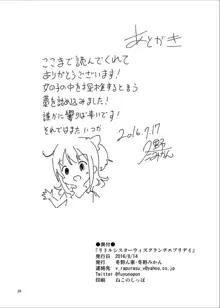 あとがき
ここまで読んでくれて
ありがとうございます!
女の子の中を探検するという
夢を詰め込みました!
誰かに響けば幸いです!
それではまたいつか
2016.7.17
冬野
みかん
●奥付●
『リトルシスターウィズグランデエブリデイ』
発行日 2016/8/14
発行 冬野ん家・冬野みかん
連絡先 v_rapurasu_v@yahoo.co.jp
Twitter @fuyunopon
印刷 ねこのしっぽ